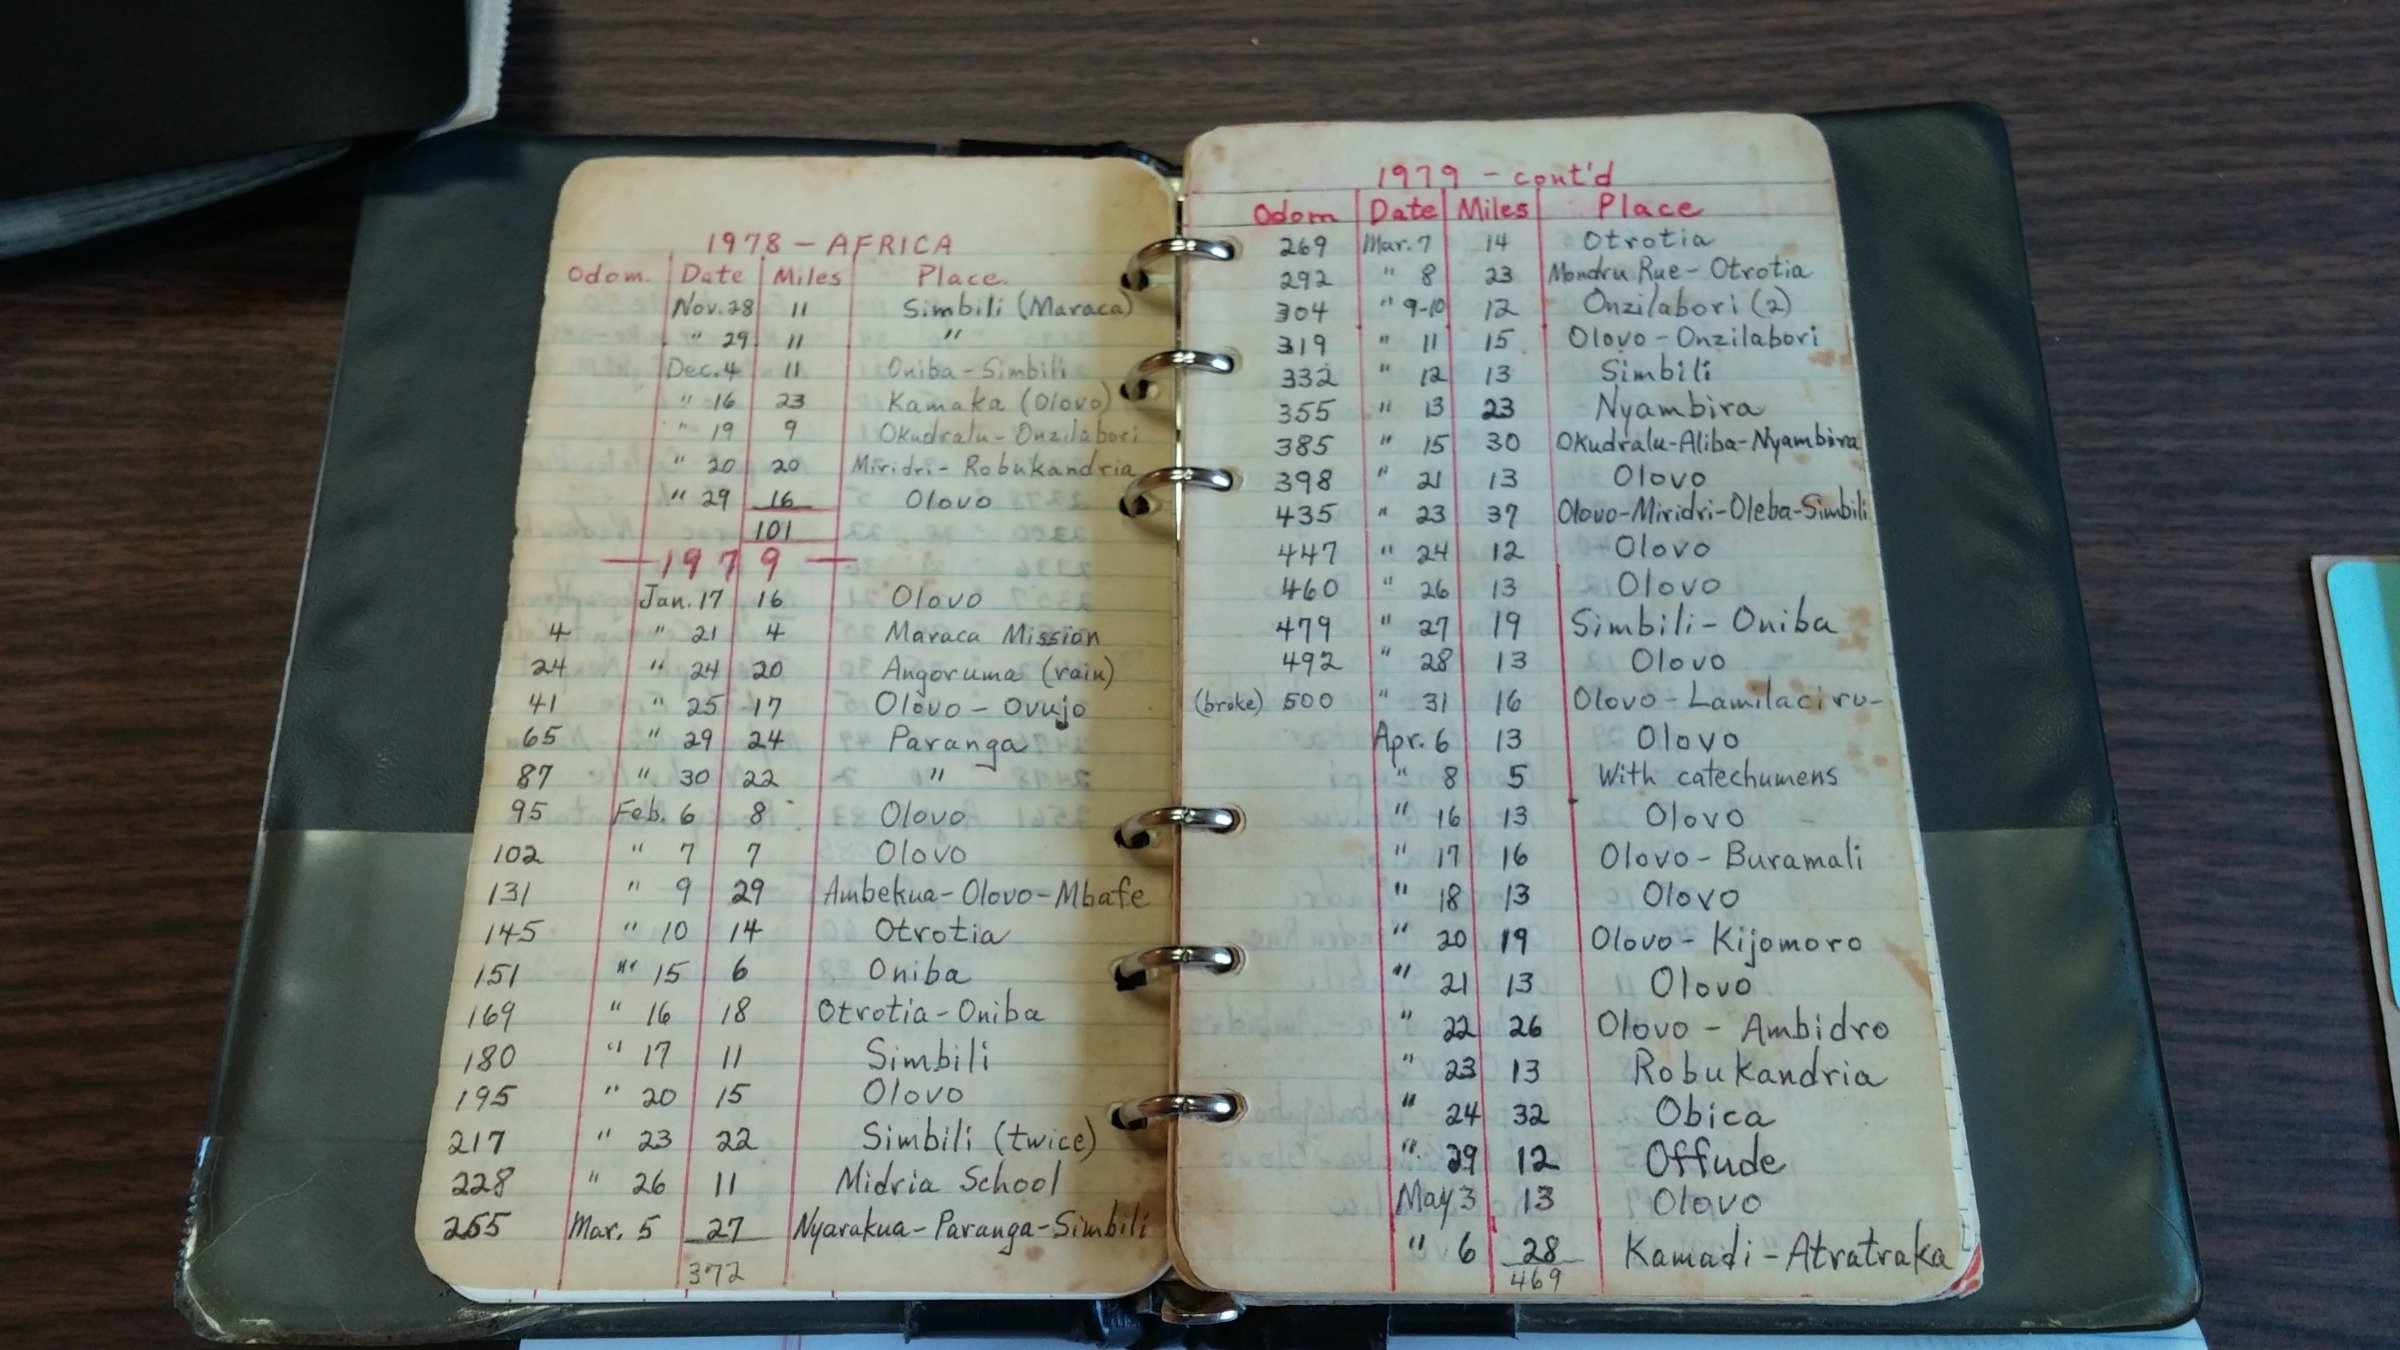 1978 - AFRICA
Odom. Date Miles Place
Nov. 28 11 Simbili (Maraca)
" 29 11 "
Dec. 4 11 Oniba - Simbili
" 16 23 Kamaka (Olovo)
" 19 9 Okudralu - Onzilabori
" 20 20 Miridri - Robukandria
" 29 16 Olovo
101
- 1979 -
Jan. 17 16 Olovo
4 " 21 4 Maraca Mission
24 " 24 20 Angoruma (rain)
41 " 25 17 Olovo - Ovujo
65 " 29 24 Paranga
87 " 30 22 "
95 Feb. 6 8 Olovo
102 " 7 7 Olovo
131 " 9 29 Ambekua - Olovo - Mbafe
145 " 10 14 Otrotia
151 " 15 6 Oniba
169 " 16 18 Otrotia - Oniba
180 " 17 11 Simbili
195 " 20 15 Olovo
217 " 23 22 Simbili (twice)
228 " 26 11 Midria School
255 Mar. 5 27 Nyarakua - Paranga - Simbili
372
1979 - cont'd
Odom Date Miles Place
269 Mar. 7 14 Otrotia
292 " 8 23 Mondru Rue - Otrotia
304 " 9-10 12 Onzilabori (2)
319 " 11 15 Olovo - Onzilabori
332 " 12 13 Simbili
355 " 13 23 Nyambira
385 " 15 30 Okudralu - Aliba - Nyambira
398 " 21 13 Olovo
435 " 23 37 Olovo - Miridri - Oleba - Simbili
447 " 24 12 Olovo
460 " 26 13 Olovo
479 " 27 19 Simbili - Oniba
492 " 28 13 Olovo
(broke) 500 " 31 16 Olovo - Lamilaciru -
Apr. 6 13 Olovo
" 8 5 With catechumens
" 16 13 Olovo
" 17 16 Olovo - Buramali
" 18 13 Olovo
" 20 19 Olovo - Kijomoro
" 21 13 Olovo
" 22 26 Olovo - Ambidro
" 23 13 Robukandria
" 24 32 Obica
" 29 12 Offude
May 3 13 Olovo
" 6 28 Kamadi - Atratraka
469